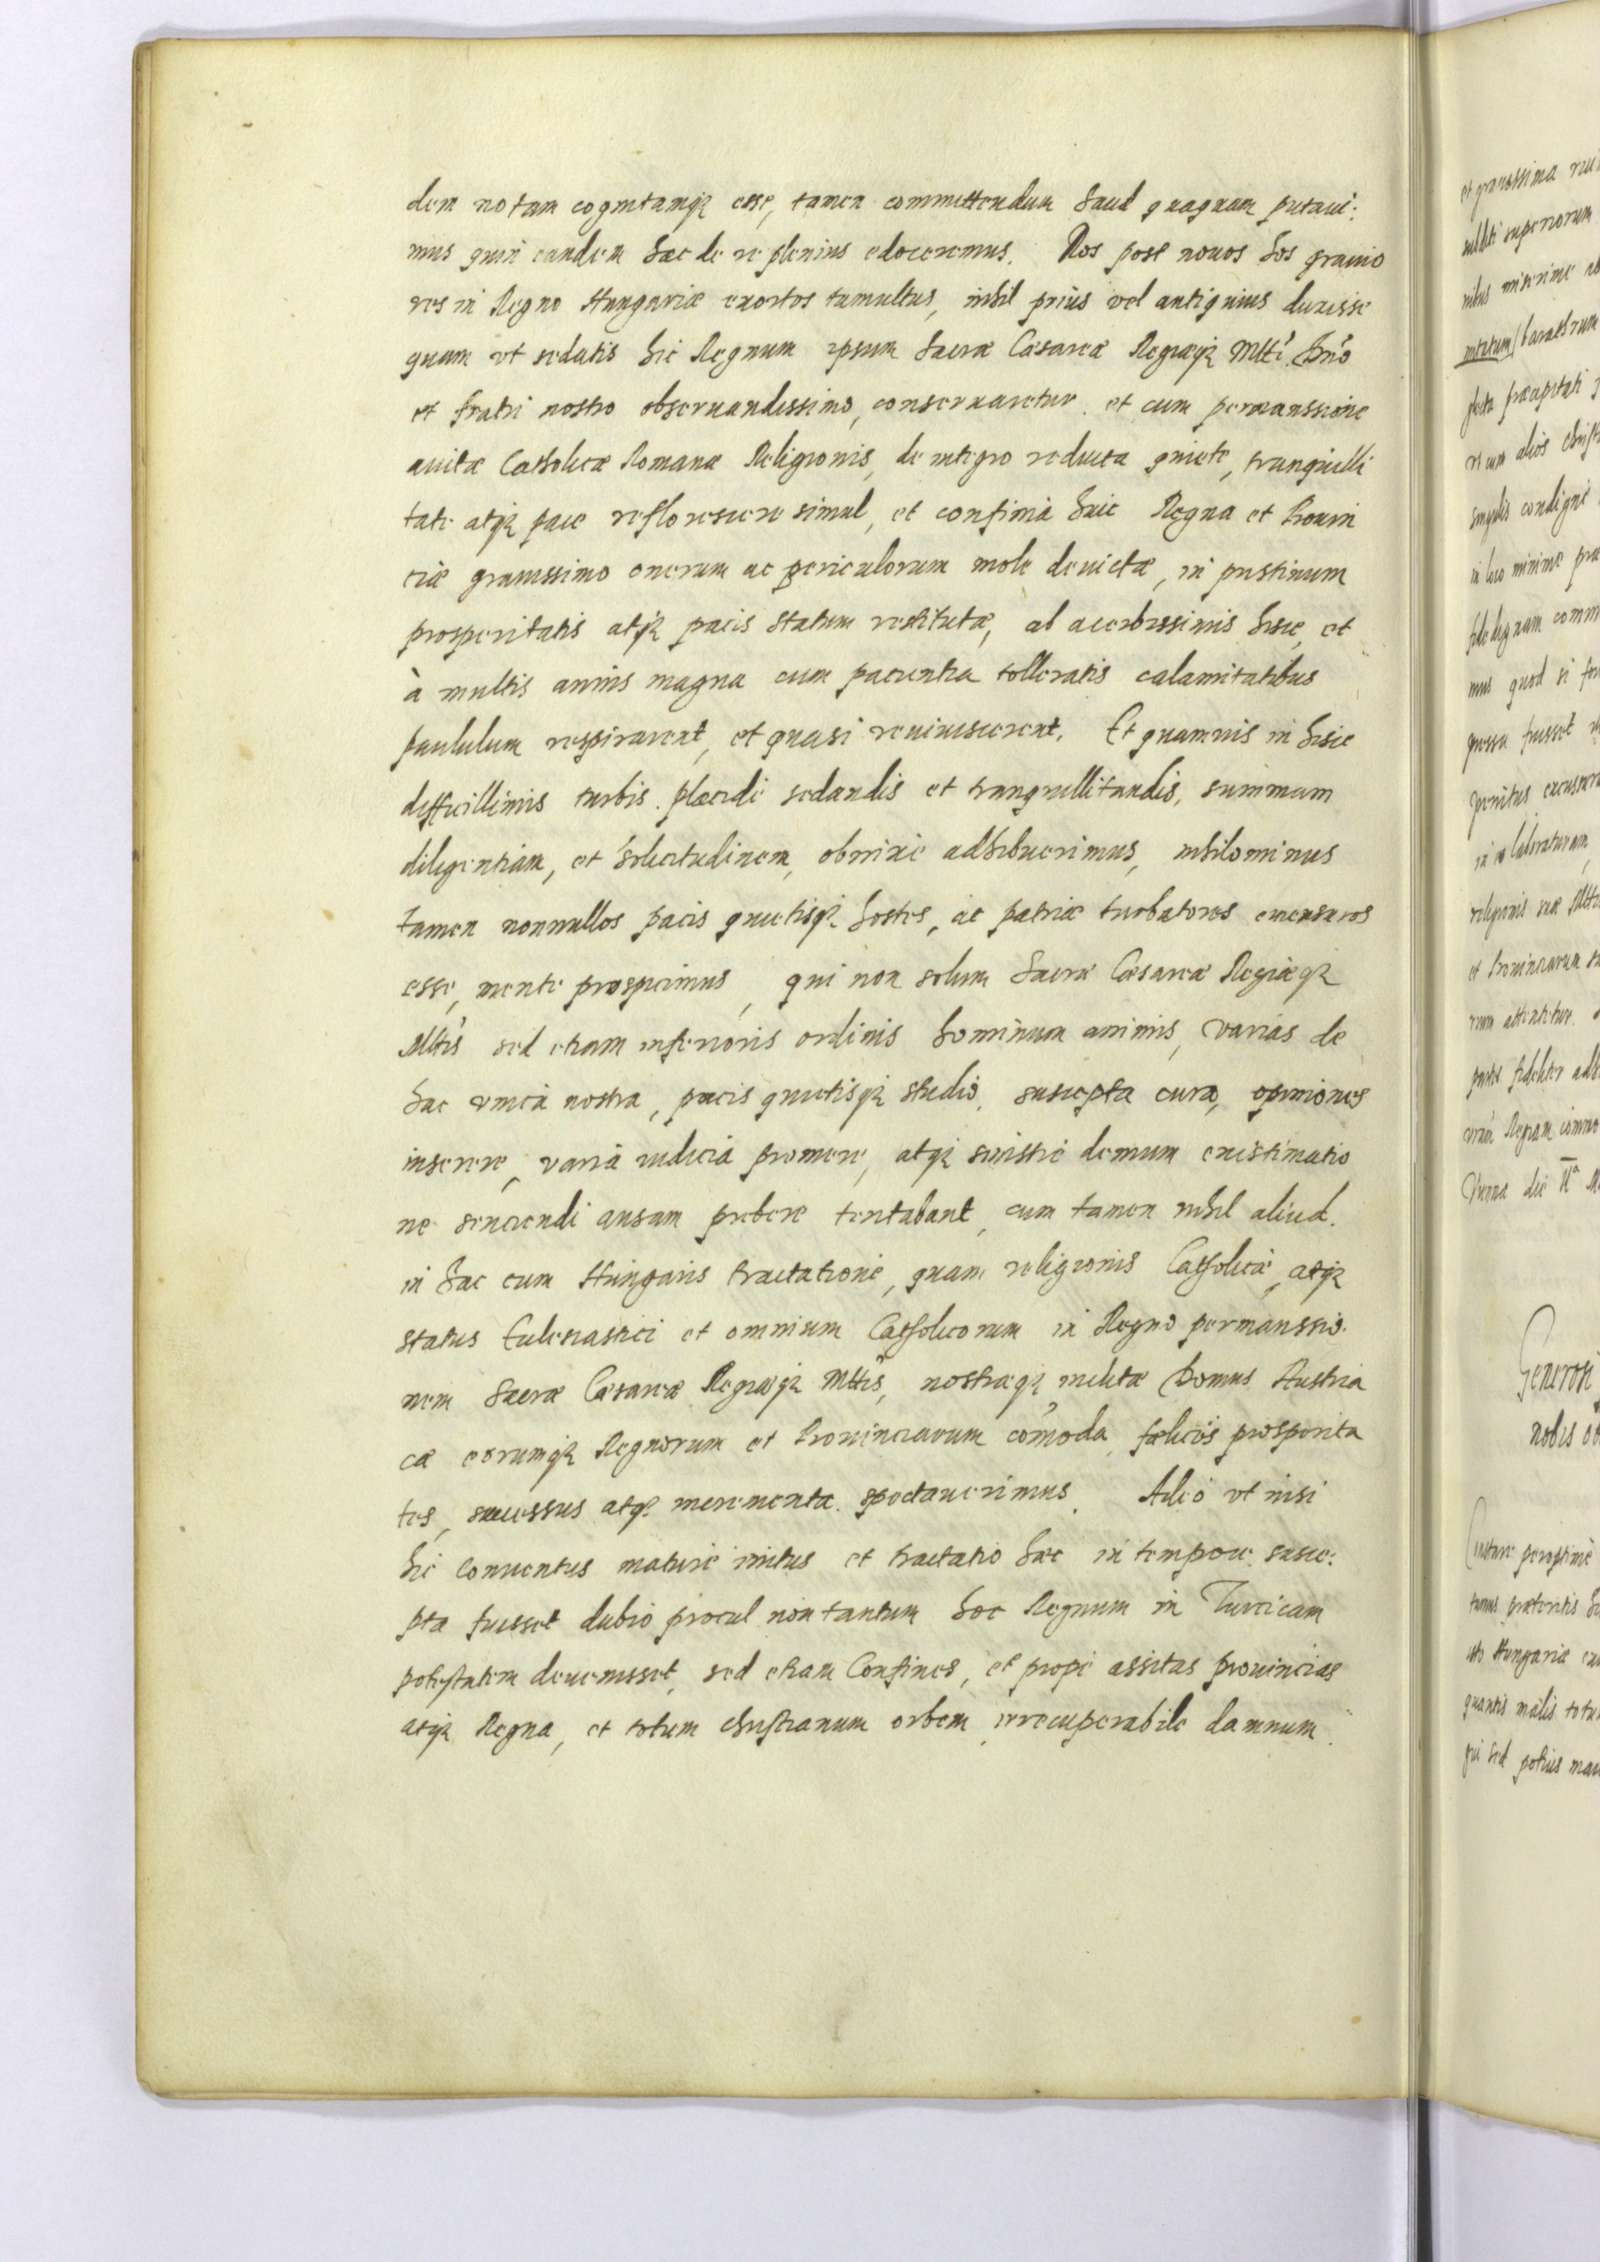 dem notam cognitamq; esse, tamen committendum haud quaquam putaui:
mus quin eandem hac de re plenius edoceremus. Nos post nouos hos grauio
res in Regno Hungariæ exortos tumultus, nihil prius vel antiquius duxisse
quam vt sedatis his Regnum ipsum Sacræ Cæsareæ Regiæq; Mtti Dno
et fratri nostro obseruandissimo, conseruaretur et cum permanssione
auitæ Catholicæ Romanæ Religionis, de integro reducta quiete, tranquilli
tate atq; pace reflorescere simul, et confinia huic Regna et Prouin
ciæ grauissimo onerum ac periculorum mole deuictæ, in pristinum
prosperitatis atq; pacis statum restitutæ, ab acerbissimis hisce, et
à multis annis magna cum pacientia tolleratis calamitatibus
paululum respirarent, et quasi reuiuiscerent. Et quamuis in hisce
difficillimis turbis placide sedandis et tranquillitandis, summam
diligentiam, et solicitudinem, obnixe adhibuerimus, nihilominus
tamen nonnullos pacis quietisq; hostes, ac patriæ turbatores
esse, mente prospicimus, qui non solum Sacræ Cæsareæ Regiæq;
Mttis sed etiam inferioris ordinis hominum animis, varias de
hac vnica nostra, pacis quietisq; studio, suscepta cura, opiniones
inserere, varia iudicia promere, atq; sinistre demum existimatio
ne senciendi ansam prebere tentabant, cum tamen nihil aliud
in hac cum Hungaris tractatione, quam religionis Catholicæ, atq;
status Eclesiastici et omnium Catholicorum in Regno permanssio.
nem Sacræ Cæsareæ Regiæq; Mttis, nostræq; inclitæ Domus Austria
cæ eorumq; Regnorum et Prouinciarum comoda, fælices prosperita
tes, successus atq; incrementa spectauerimus. Adeo vt nisi
hic Conuentus mature initus et tractatio hæc in tempore susce:
pta fuisset dubio procul non tantum hoc Regnum in Turcicam
potestatem deuenisset, sed etiam Confines, et prope assitas prouincias
atq; Regna, et totum christianum orbem irrecuperabile damnum
et grauissima
subditi superiorum
nibus miserime
baratrum
præcipitati
alios
singulis condigne
in loco minime
fide dignam
mus quod si
fuisset
penitus
in laboraturam
religionis suæ
et Prouinciarum
rum attentetur
partes fideliter
Regiam
Vienna die
Generosi
nobis
præteritis
Hungaria
quantis malis
qui sed potius